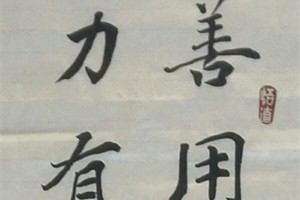 善用
力有